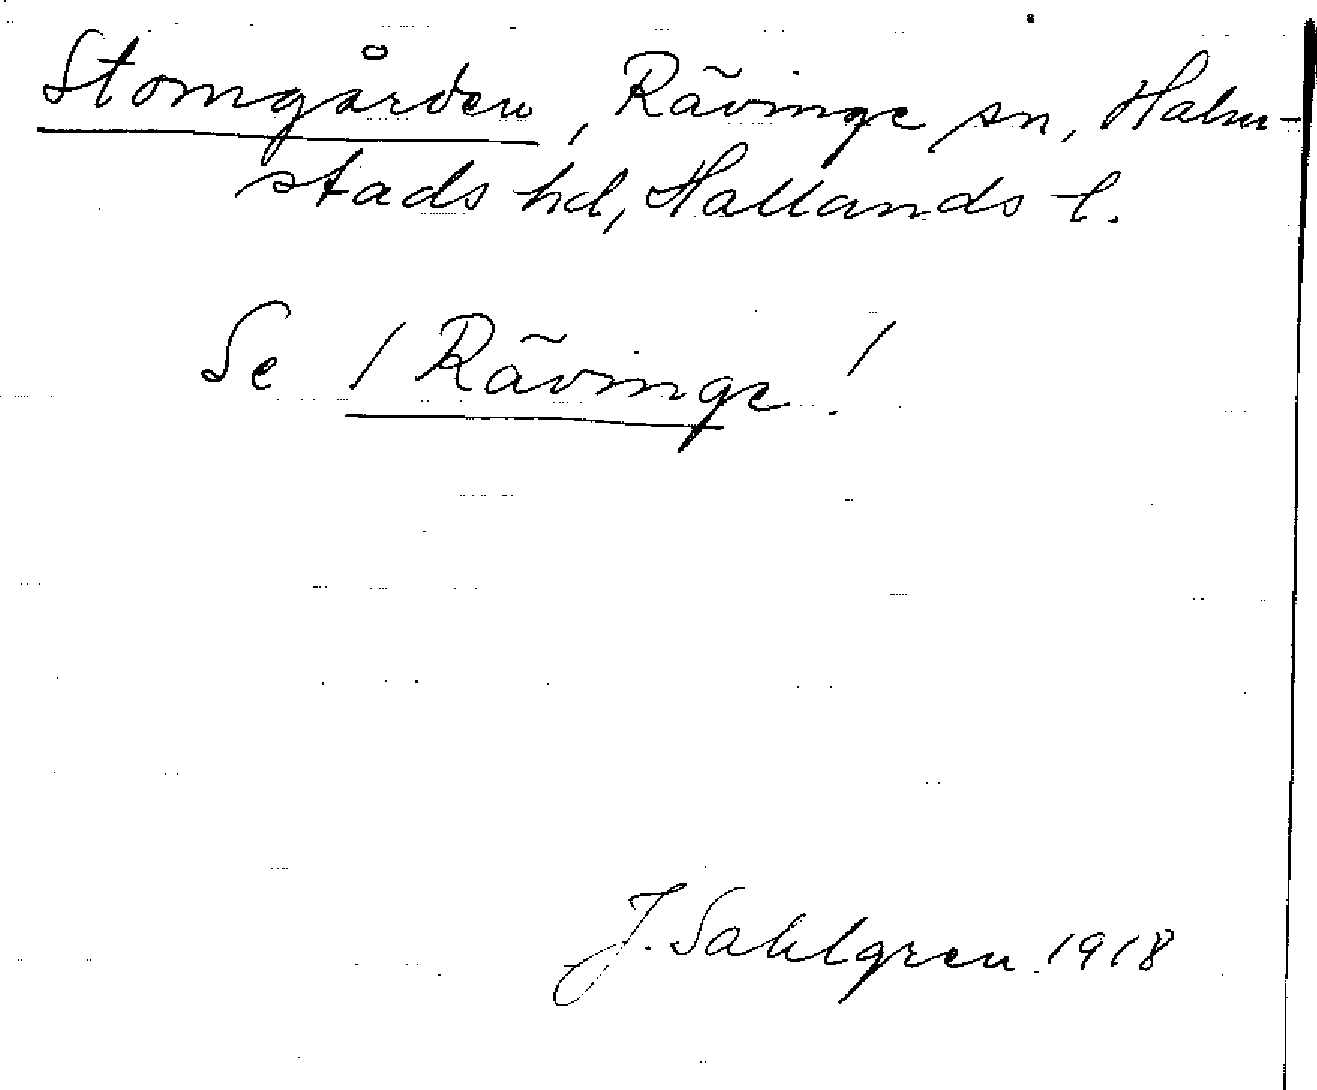 Stomgården, Rävinge sn, Halm-
stads hd, Hallands l.
Se / Rävinge!
J. Sahlgren 1918